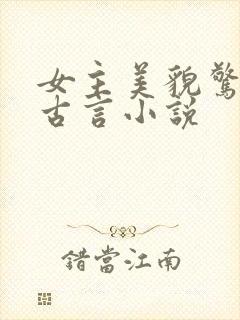 女主美貌驚
古言小説
錯當江南